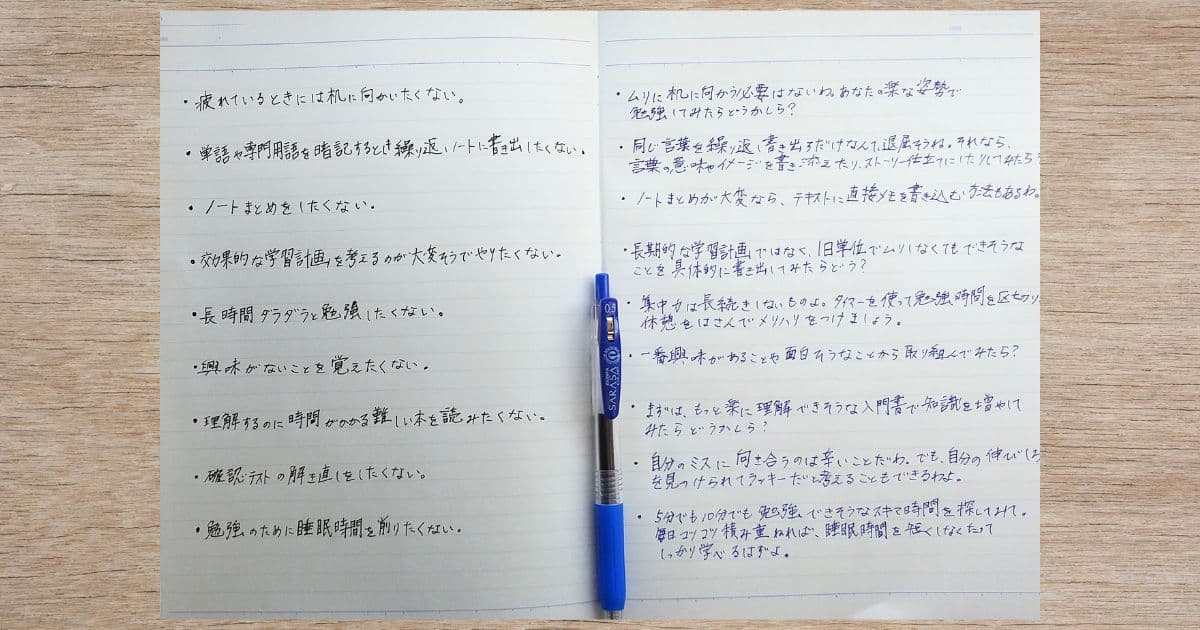 ・疲れているときには机に向かいたくない。
・単語や専門用語を暗記するとき繰り返しノートに書き出したくない。
・ノートまとめをしたくない。
・効果的な学習計画を考えるのが大変そうでやりたくない。
・長時間ダラダラと勉強したくない。
・興味がないことを覚えたくない。
・理解するのに時間がかかる難しい本を読みたくない。
・確認テストの解き直しをしたくない。
・勉強のために睡眠時間を削りたくない。
・ムリに机に向かう必要はないわ。あなたの楽な姿勢で
勉強してみたらどうかしら?
・同じ言葉を繰り返し書き出すだけなんて、退屈そうね。それなら、
言葉の意味やイメージを書き添えたり、ストーリー仕立てにしたりしてみたら
・ノートまとめが大変なら、テキストに直接メモを書き込む方法もあるわ。
・長期的な学習計画ではなく、1日単位でムリしなくてもできそうな
ことを具体的に書き出してみたらどう?
・集中力は長続きしないものよ。タイマーを使って勉強時間を区切り、
休憩をはさんでメリハリをつけましょう。
・一番興味があることや面白そうなことから取り組んでみたら?
・まずは、もっと楽に理解できそうな入門書で知識を増やして
みたらどうかしら?
・自分のミスに向き合うのは辛いことだわ。でも、自分の伸びし
を見つけられてラッキーだと考えることもできるわよ。
・5分でも10分でも勉強できそうなスキマ時間を探してみて。
毎日コツコツ積み重ねれば、睡眠時間を短くしなくたって
しっかり学べるはずよ。
0.5
ZEBRA
SARASA